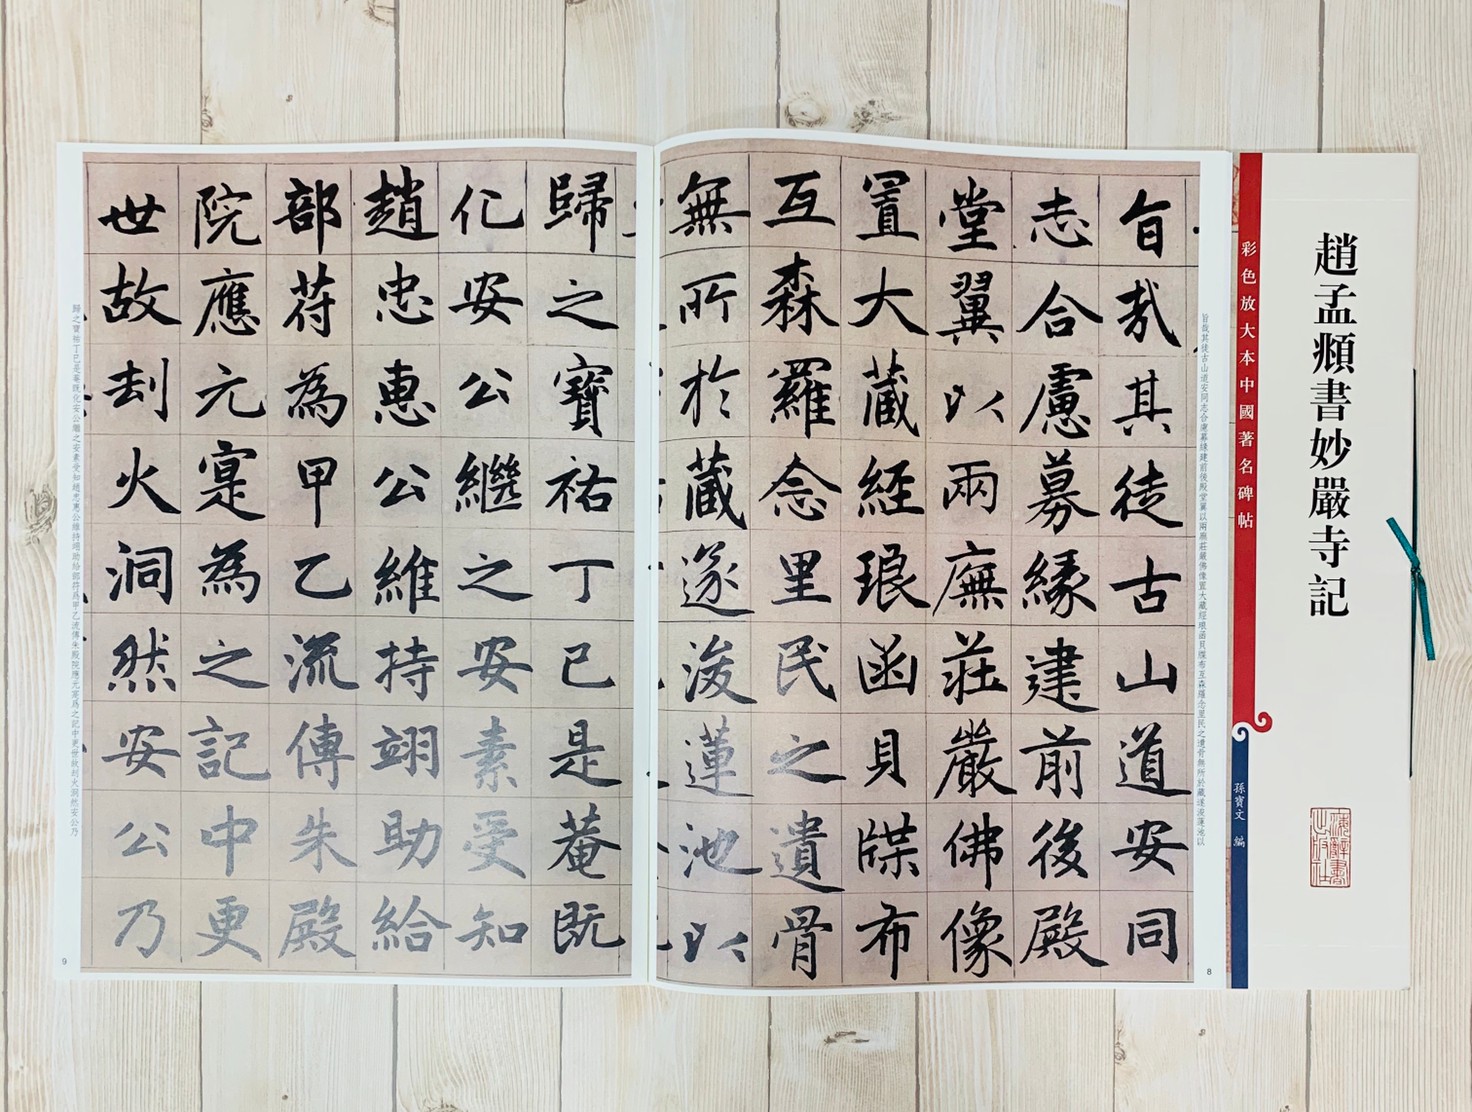 趙孟頫書妙嚴寺記
彩色放大本中國著名碑帖
孫寶文 編
旨哉其徒古山道安同志合慮募緣建前後殿堂翼以兩廡莊嚴佛像置大藏經琅函貝牒布互森羅念里民之遺骨無所於藏遂浚蓮池以
8
旨哉其徒古山道安同
志合慮募緣建前後殿
堂翼以兩廡莊嚴佛像
置大藏經琅函貝牒布
互森羅念里民之遺骨
無所於藏遂浚蓮池以
歸之寶祐丁巳是菴既
化安公繼之安素受知
趙忠惠公維持翊助給
部苻為甲乙流傳朱殿
院應元寔為之記中更
世故刦火洞然安公乃
歸之寶祐丁巳是菴既化安公繼之安素受知趙忠惠公維持翊助給部苻爲甲乙流傳朱殿院應元寔爲之記中更世故刦火洞然安公乃
9